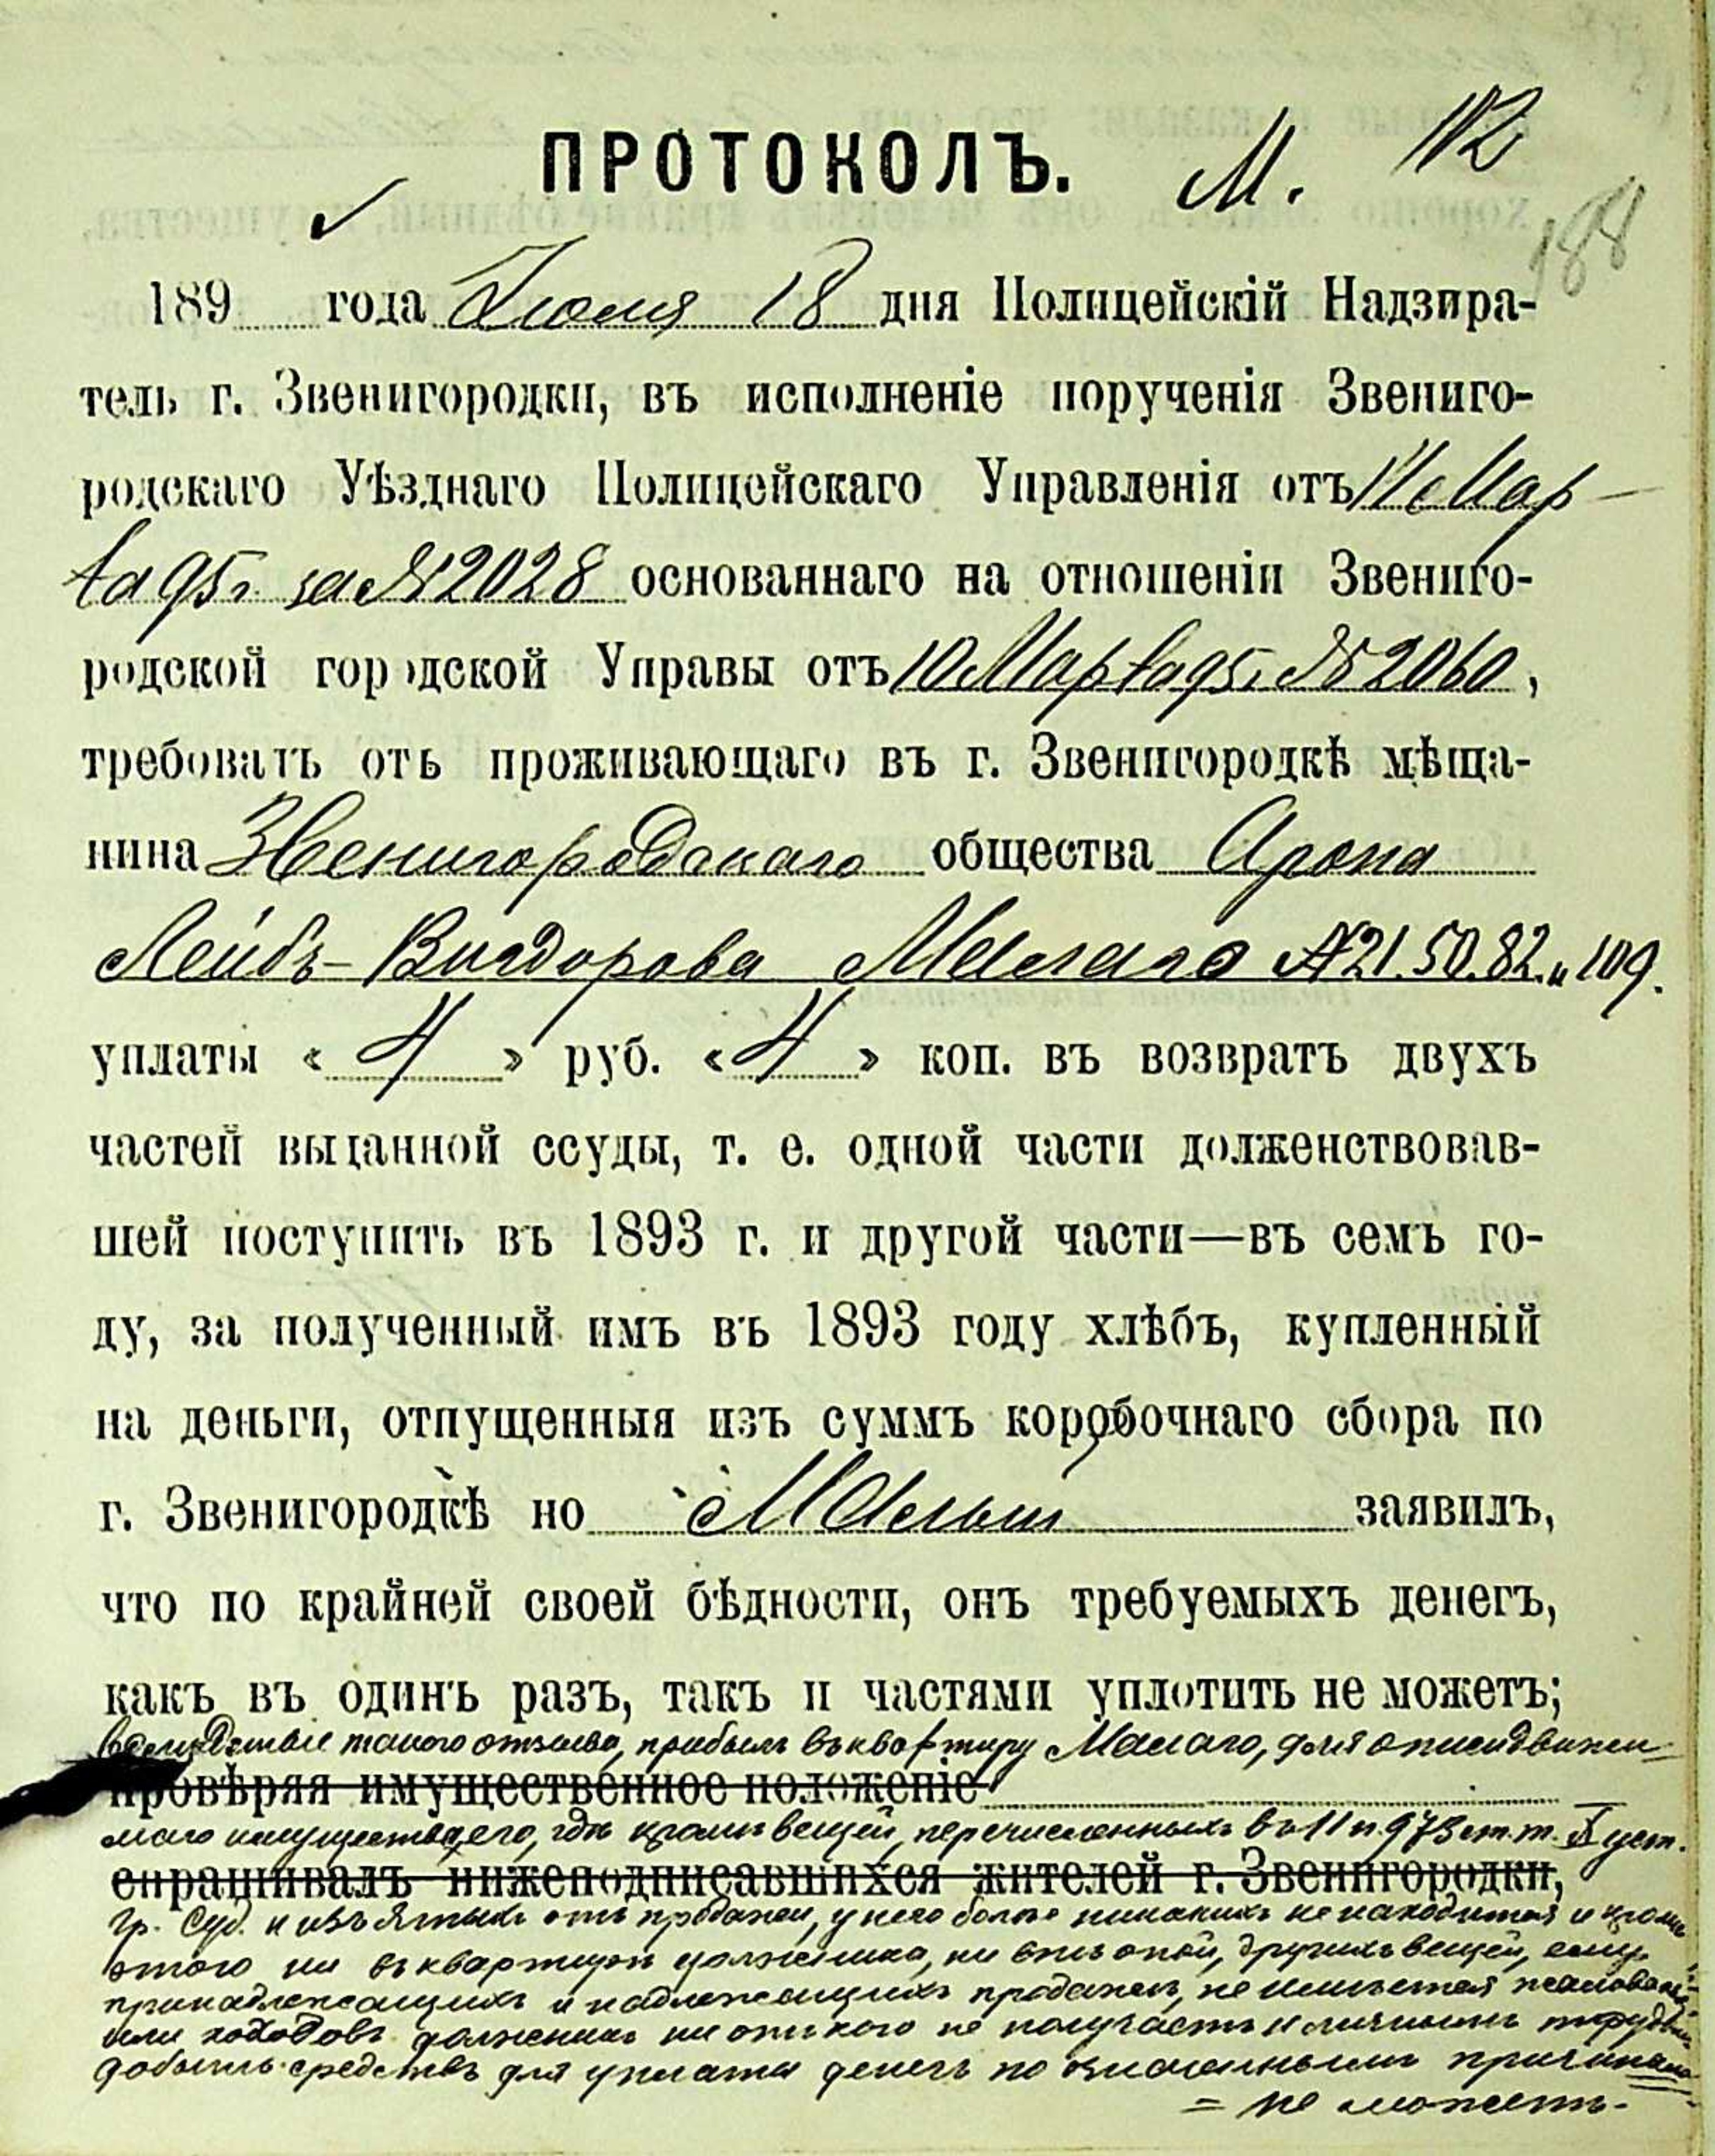 ПРОТОКОЛЪ. М. 112
188
189 года Іюля 18 дня Полицейскій Надзира-
тель г. Звенигородки, въ исполненіе порученія Звениго-
родскаго Уѣзднаго Полицейскаго Управленія отъ Мар-
та 95 г. за № 2028 основаннаго на отношеніи Звениго-
родской городской Управы отъ 10 Марта 95 г. № 2060,
требовать отъ проживающаго въ г. Звенигородкѣ мѣща-
нина Звенигородскаго общества Арона
Лейбъ-Вигдорова Малаго № 21. 50. 82. и 109.
уплаты « 4 » руб. « 4 » коп. въ возвратъ двухъ
частей выданной ссуды, т. е. одной части долженствовав-
шей поступить въ 1893 г. и другой части—въ семъ го-
ду, за полученный имъ въ 1893 году хлѣбъ, купленный
на деньги, отпущенныя изъ суммъ коробочнаго сбора по
г. Звенигородкѣ но Малый заявилъ,
что по крайней своей бѣдности, онъ требуемыхъ денегъ,
какъ въ одинъ разъ, такъ и частями уплотить не можетъ;
вслѣдствіе такого отзыва, прибылъ въ квартиру Малаго, для описи движи-
провѣряя имущественное положеніе
маго имущества его, гдѣ кромѣ вещей, перечисленныхъ въ 11 п. 973 ст. т. X уст.
спрашивалъ нижеподписавшихся жителей г. Звенигородки,
гр. Суд. и изъятыхъ отъ продажи, у него болѣе никакихъ не находится и кромѣ
этого ни въ квартирѣ должника, ни внѣ оной, другихъ вещей, ему
принадлежащихъ и надлежащихъ продажѣ, не имѣется жалованья
или доходовъ должникъ ни отъ кого не получаетъ и личнымъ трудомъ
добыть средствъ для уплаты денегъ по означеннымъ причинамъ
= не можетъ.